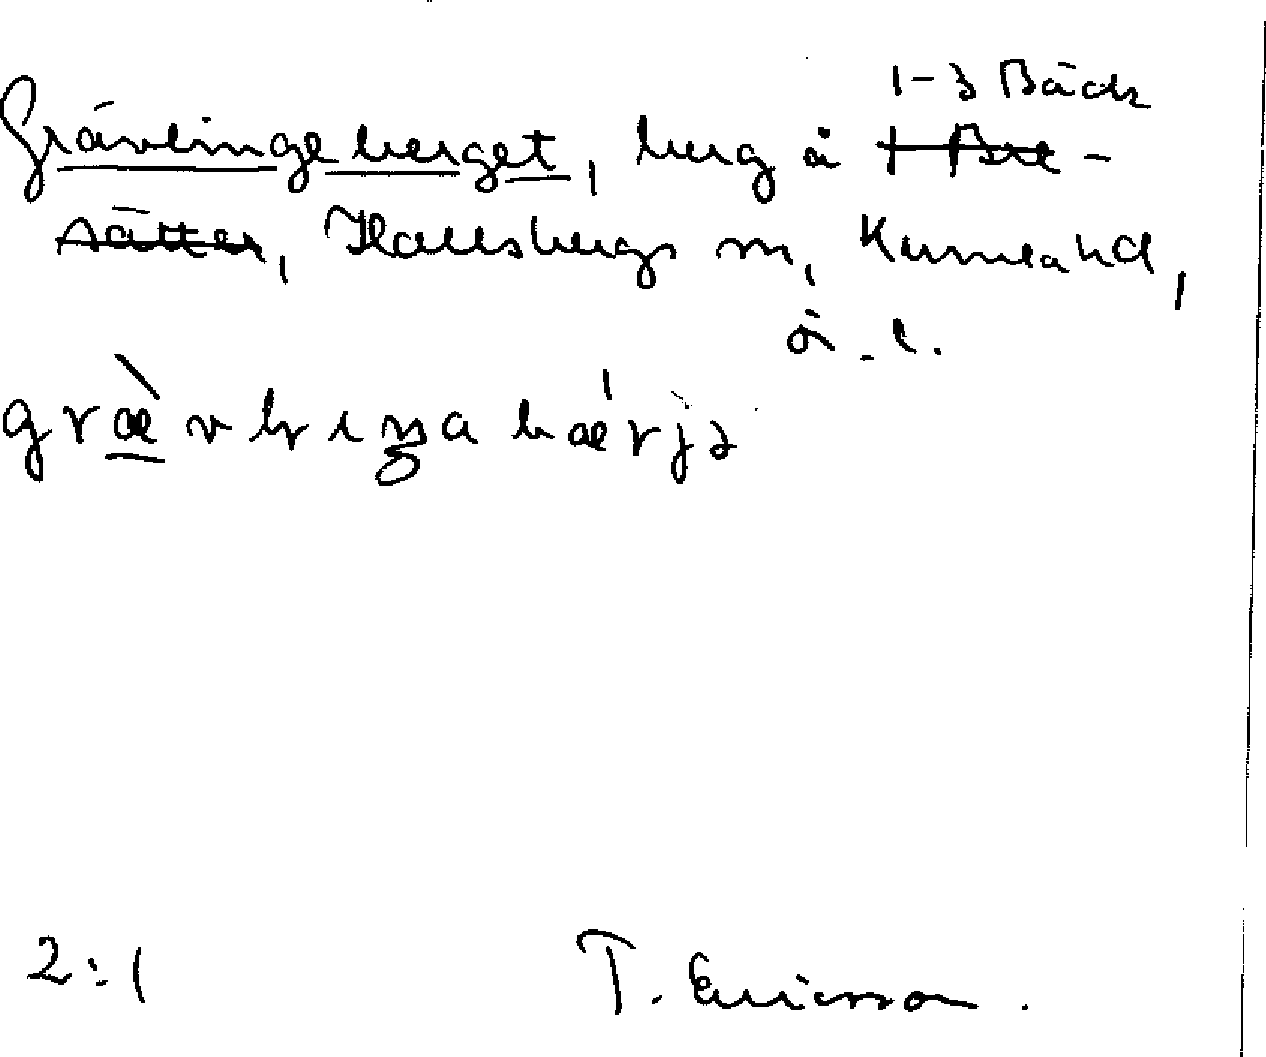 1-3 Bäck
Grävlingeberget, berg å 1 Bre-
säter, Hallsbergs sn, Kumla hd,
Ö. l.
græ̀vlıŋabǽrjə
2:1 T. Ericsson.